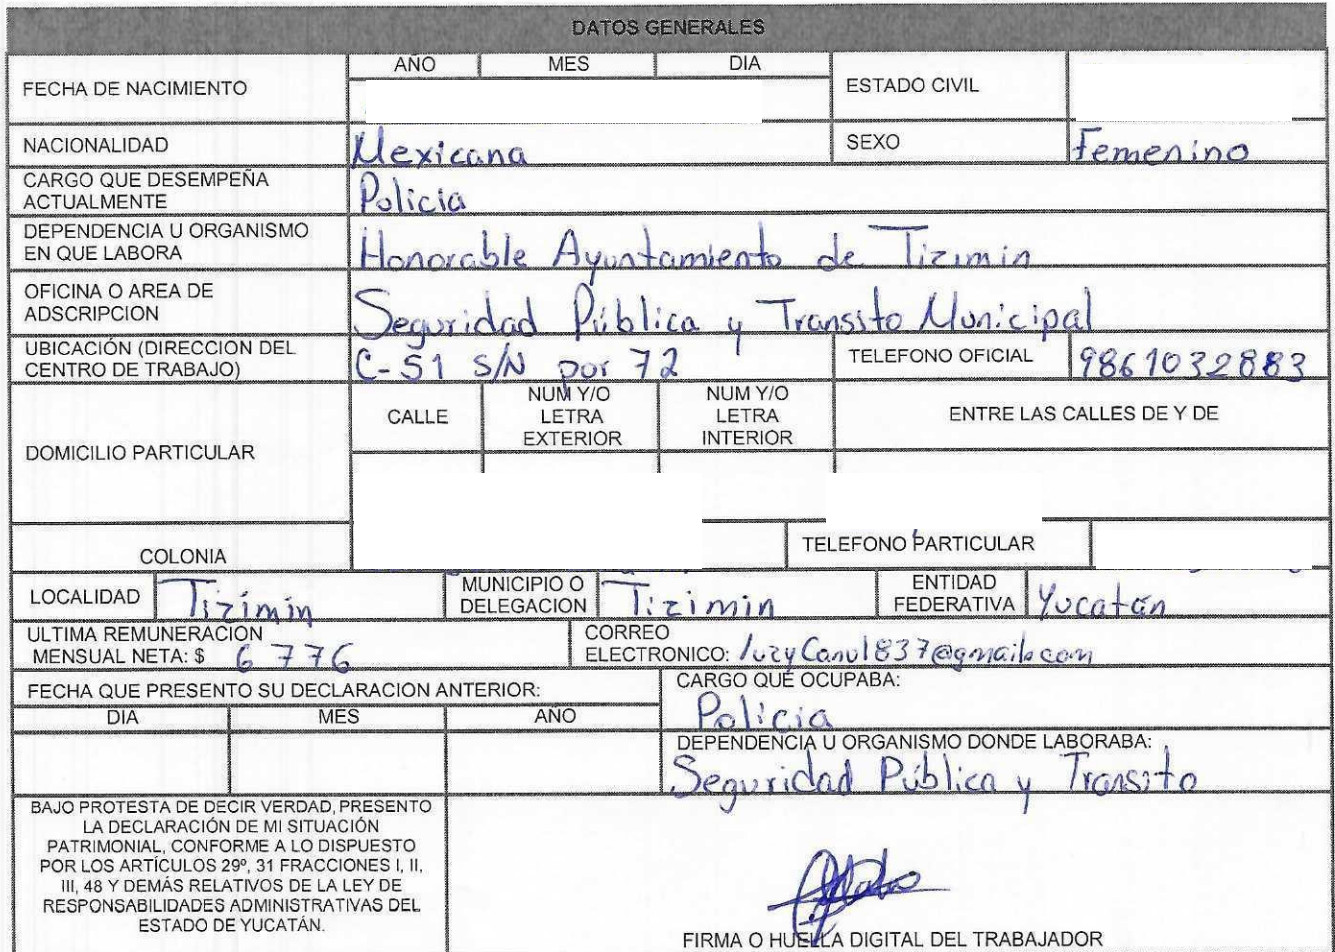 DATOS GENERALES
FECHA DE NACIMIENTO
AÑO MES DIA
ESTADO CIVIL
NACIONALIDAD Mexicana SEXO Femenino
CARGO QUE DESEMPEÑA
ACTUALMENTE
Policia
DEPENDENCIA U ORGANISMO
EN QUE LABORA
Honorable Ayuntamiento de Tizimin
OFICINA O AREA DE
ADSCRIPCION
Seguridad Pública y Transito Municipal
UBICACIÓN (DIRECCION DEL
CENTRO DE TRABAJO)
C-51 S/N por 72
TELEFONO OFICIAL 9861032883
DOMICILIO PARTICULAR
CALLE
NUM Y/O
LETRA
EXTERIOR
NUM Y/O
LETRA
INTERIOR
ENTRE LAS CALLES DE Y DE
COLONIA
TELEFONO PARTICULAR
LOCALIDAD Tizímin
MUNICIPIO O
DELEGACION
Tizimin
ENTIDAD
FEDERATIVA
Yucatán
ULTIMA REMUNERACION
MENSUAL NETA: $ 6 776
CORREO
ELECTRONICO: luzyCanul837@gmail.com
FECHA QUE PRESENTO SU DECLARACION ANTERIOR:
DIA MES AÑO
CARGO QUE OCUPABA:
Policia
DEPENDENCIA U ORGANISMO DONDE LABORABA:
Seguridad Pública y Transito
BAJO PROTESTA DE DECIR VERDAD, PRESENTO
LA DECLARACIÓN DE MI SITUACIÓN
PATRIMONIAL, CONFORME A LO DISPUESTO
POR LOS ARTÍCULOS 29º, 31 FRACCIONES I, II,
III, 48 Y DEMÁS RELATIVOS DE LA LEY DE
RESPONSABILIDADES ADMINISTRATIVAS DEL
ESTADO DE YUCATÁN.
FIRMA O HUELLA DIGITAL DEL TRABAJADOR